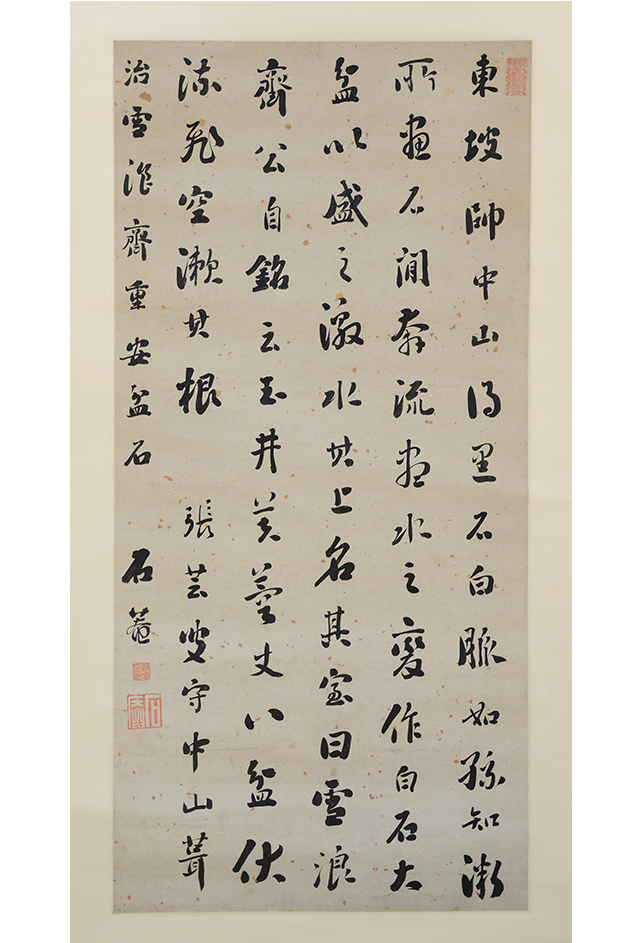 東坡帥中山得黑石白脈如孫知微
所畫石間奔流盡水之變作白石大
盆以盛之激水其上名其室曰雪浪
齊公自銘云玉井芙蓉丈八盆伏
流飛空漱其根 張芸叟守中山葺
治雪浪齊重安盆石 石菴